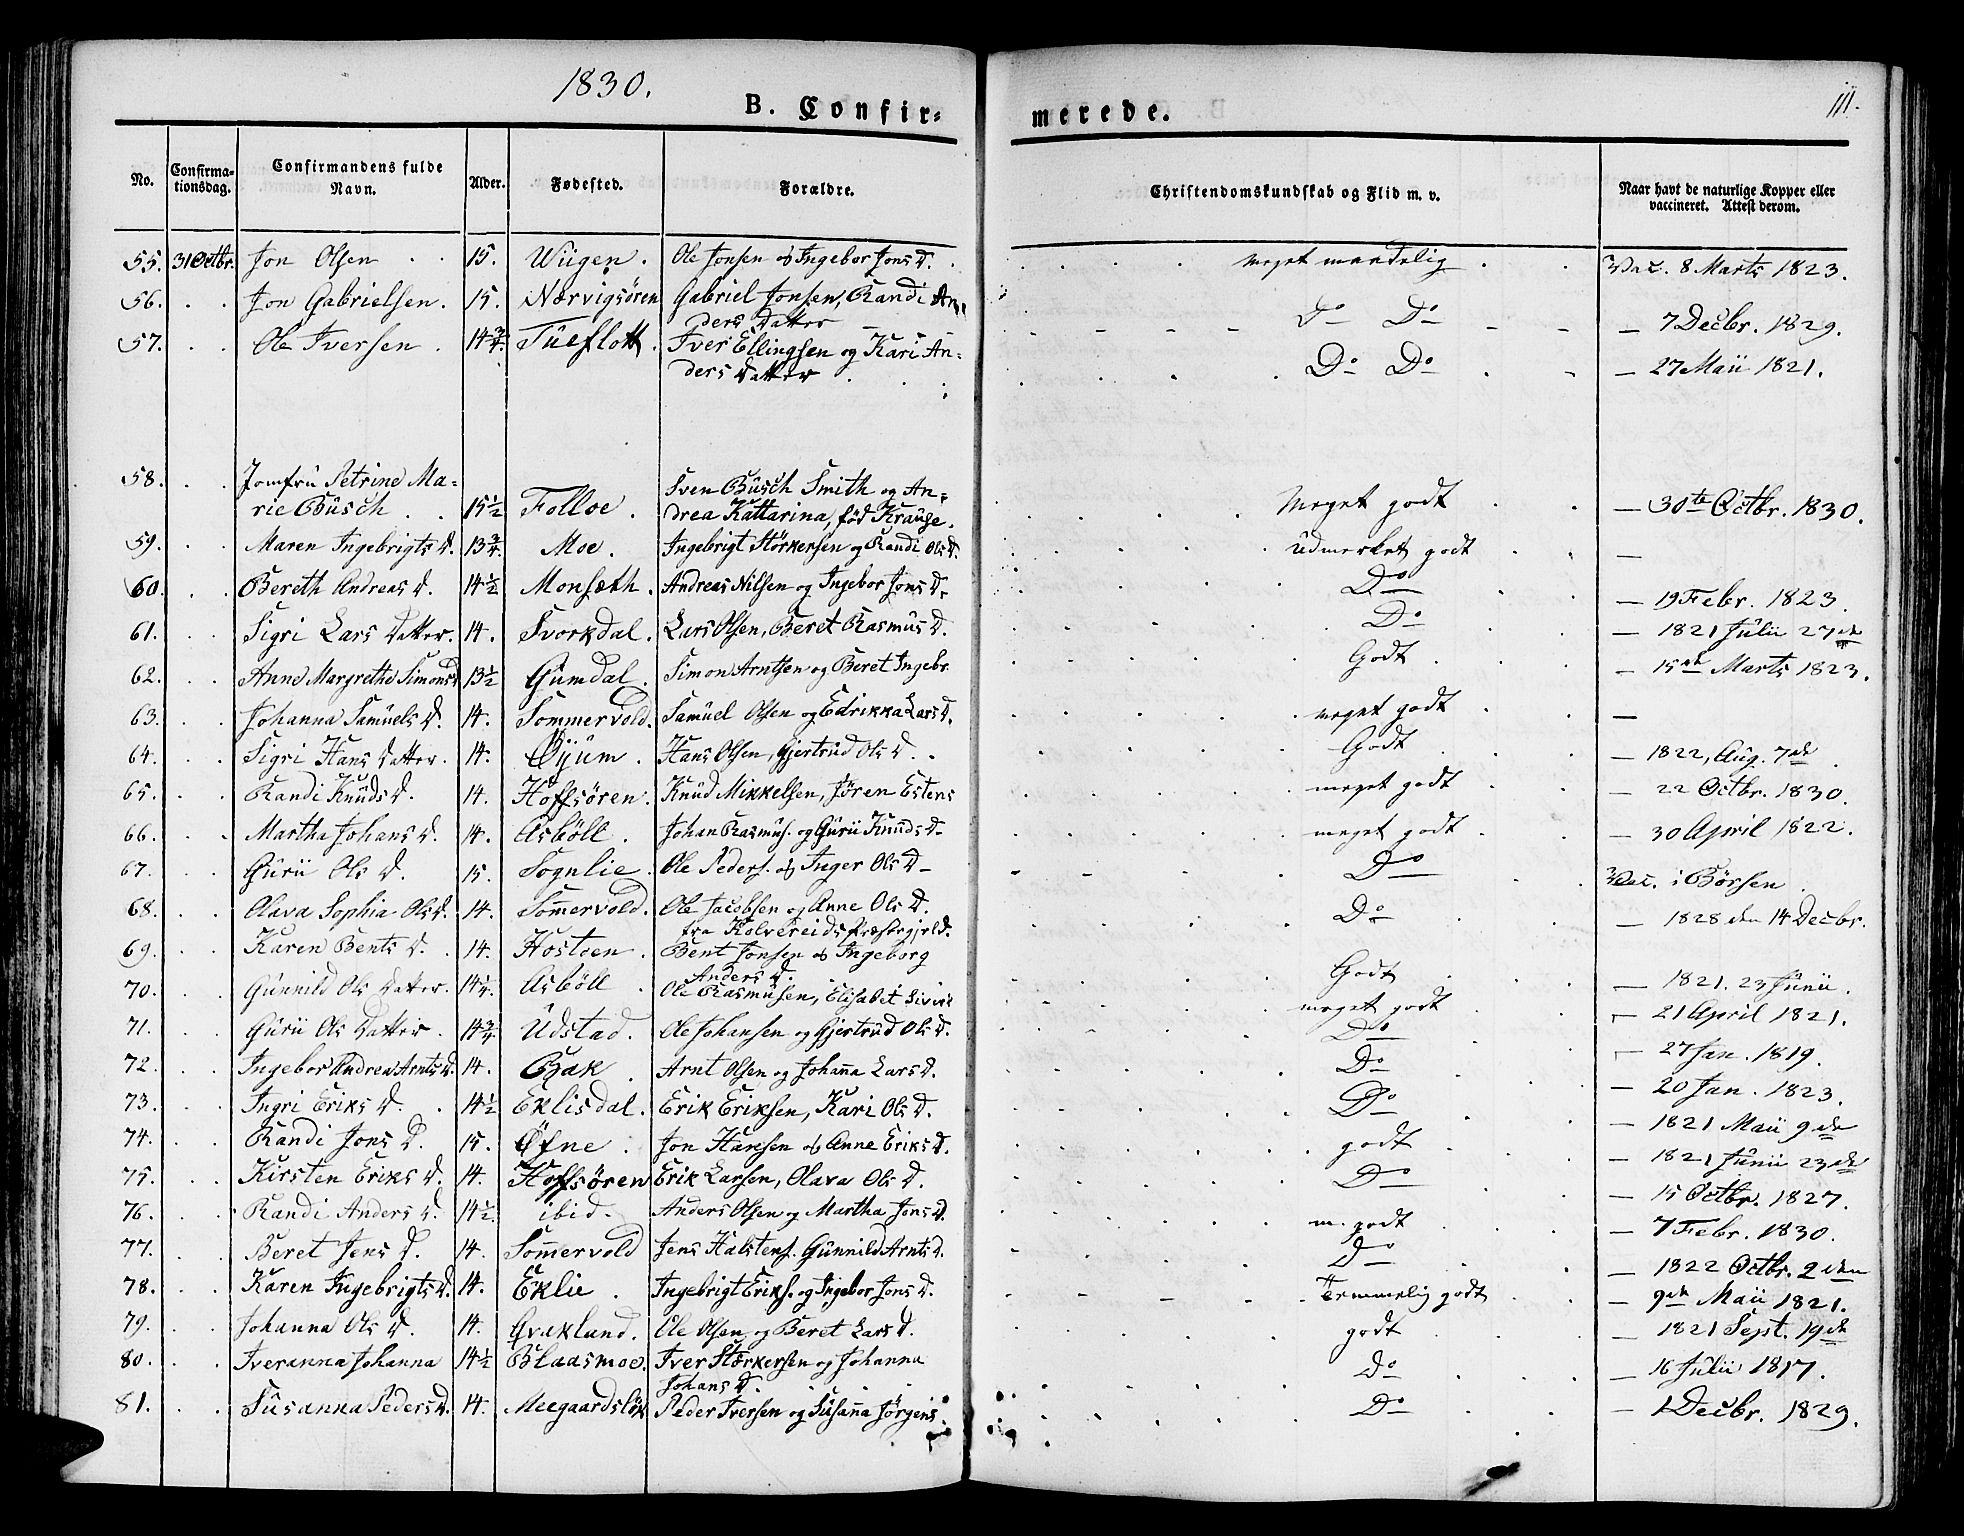 1830.
111.
B. Confir-
merede.
No.
Confirma-
tionsdag.
Confirmandens fulde
Navn.
Alder.
Fødested.
Forældre.
Christendomskundskab og Flid m. v.
Naar havt de naturlige Kopper eller
vaccineret. Attest derom.
55. 31 Octbr. Jon Olsen 15. Wiigen. Ole Jonsen og Ingebor Jons D. meget maadelig Vac. 8 Marts 1823.
56. Jon Gabrielsen. 15. Nærvigsören Gabriel Jonsen, Randi An-
ders Datter Do Do — 7 Decbr. 1829.
57. Ole Iversen 14¾. Tüeflott. Iver Ellingsen og Kari An-
ders Datter Do Do — 27 Maii 1821.
58. Jomfrü Petrine Ma-
rie Büsch 15½ Folloe. Sven Büsch Smith og An-
drea Kattarina, fød Krauge. Meget godt — 30te Octbr. 1830.
59. Maren Ingebrigts D. 13¾ Moe. Ingebrigt Störkersen og Randi Ols D. üdmerket godt —
60. Bereth Andreas D. 14½ Monsæth. Andreas Nilsen og Ingebor Jons D. Do — 19 Febr. 1823.
61. Sigri Lars Datter. 14. Svorkdal. Lars Olsen, Beret Rasmüs D. Do — 1821 Julii 27de
62. Anne Margrethe Simons D 13½ Gumdal. Simon Arntsen og Beret Ingebr. Godt — 15de Marts 1823.
63. Johanna Samüels D. 14. Sommervold. Samüel Olsen og Edrikka Lars D. meget godt —
64. Sigri Hans Datter. 14. Øjum. Hans Olsen, Gjertrud Ols D. Godt — 1822, Aug. 7de
65. Randi Knüds D. 14. Hoffsören. Knüd Mikkelsen, Sören Estens meget godt — 22 Octbr. 1830.
66. Martha Johans D. 14. Asböll. Johan Rasmus. og Gürü Knüds D meget godt — 30 April 1822.
67. Gürii Ols D. 15. Sognlie. Ole Peders. og Inger Ols D Do Vac. i Börsen
68. Olava Sophia Ols D. 14. Somervold. Ole Jacobsen og Anne Ols D.
fra Kolvereids Præstegjeld. Do — 1828 den 14 Decbr.
69. Karen Bents D. 14. Hostoen. Bent Jonsen og Ingeborg
Anders D. Godt — 1821. 23 Jünii.
70. Günnild Ols Datter. 14¼. Asböll Ole Rasmüsen, Elisabet Siver meget godt — 21 April 1821.
71. Gürii Ols Datter. 14¾ Üdstad. Ole Johansen og Gjertrüd Ols D. Do — 27 Jan. 1819.
72. Ingebor Andrea Arnts D. 14. Bak. Arnt Olsen og Johana Lars D. Do — 20 Jan. 1823.
73. Ingri Eriks D. 14½ Eklisdal. Erik Eriksen, Kari Ols D. Do — 1821 Maii 9de
74. Randi Jons D. 15. Öfne. Jon Hansen og Anne Eriks D. godt — 1821 Jünii 23de
75. Kirsten Eriks D. 14. Hoffsören Erik Larsen, Olava Ols D. Do — 15 Octbr. 1827.
76. Randi Anders D. 14½. ibid. Anders Olsen og Martha Jons D. m. godt — 7 Febr. 1830.
77. Beret Jens D. 14. Somervold Jens Halstens. Günnild Arnts D. Do — 1822 Octbr. 2den
78. Karen Ingebrigts D. 14. Eklie. Ingebrigt Eriks. og Ingebor Jons D. Temmelig godt — 9de Maii 1821.
79. Johanna Ols D. 14. Qvakland. Ole Olsen og Beret Lars D. godt — 1821 Sept. 19de
80. Iveranna Johanna 14½ Blaasmoe. Iver Störkersen og Johanna
Johans D. Do — 16 Julii 1817.
81. Susanna Peders D. 14. Meegaardslök Peder Iversen og Susana Jörgens. Do — 1 Decbr. 1829.